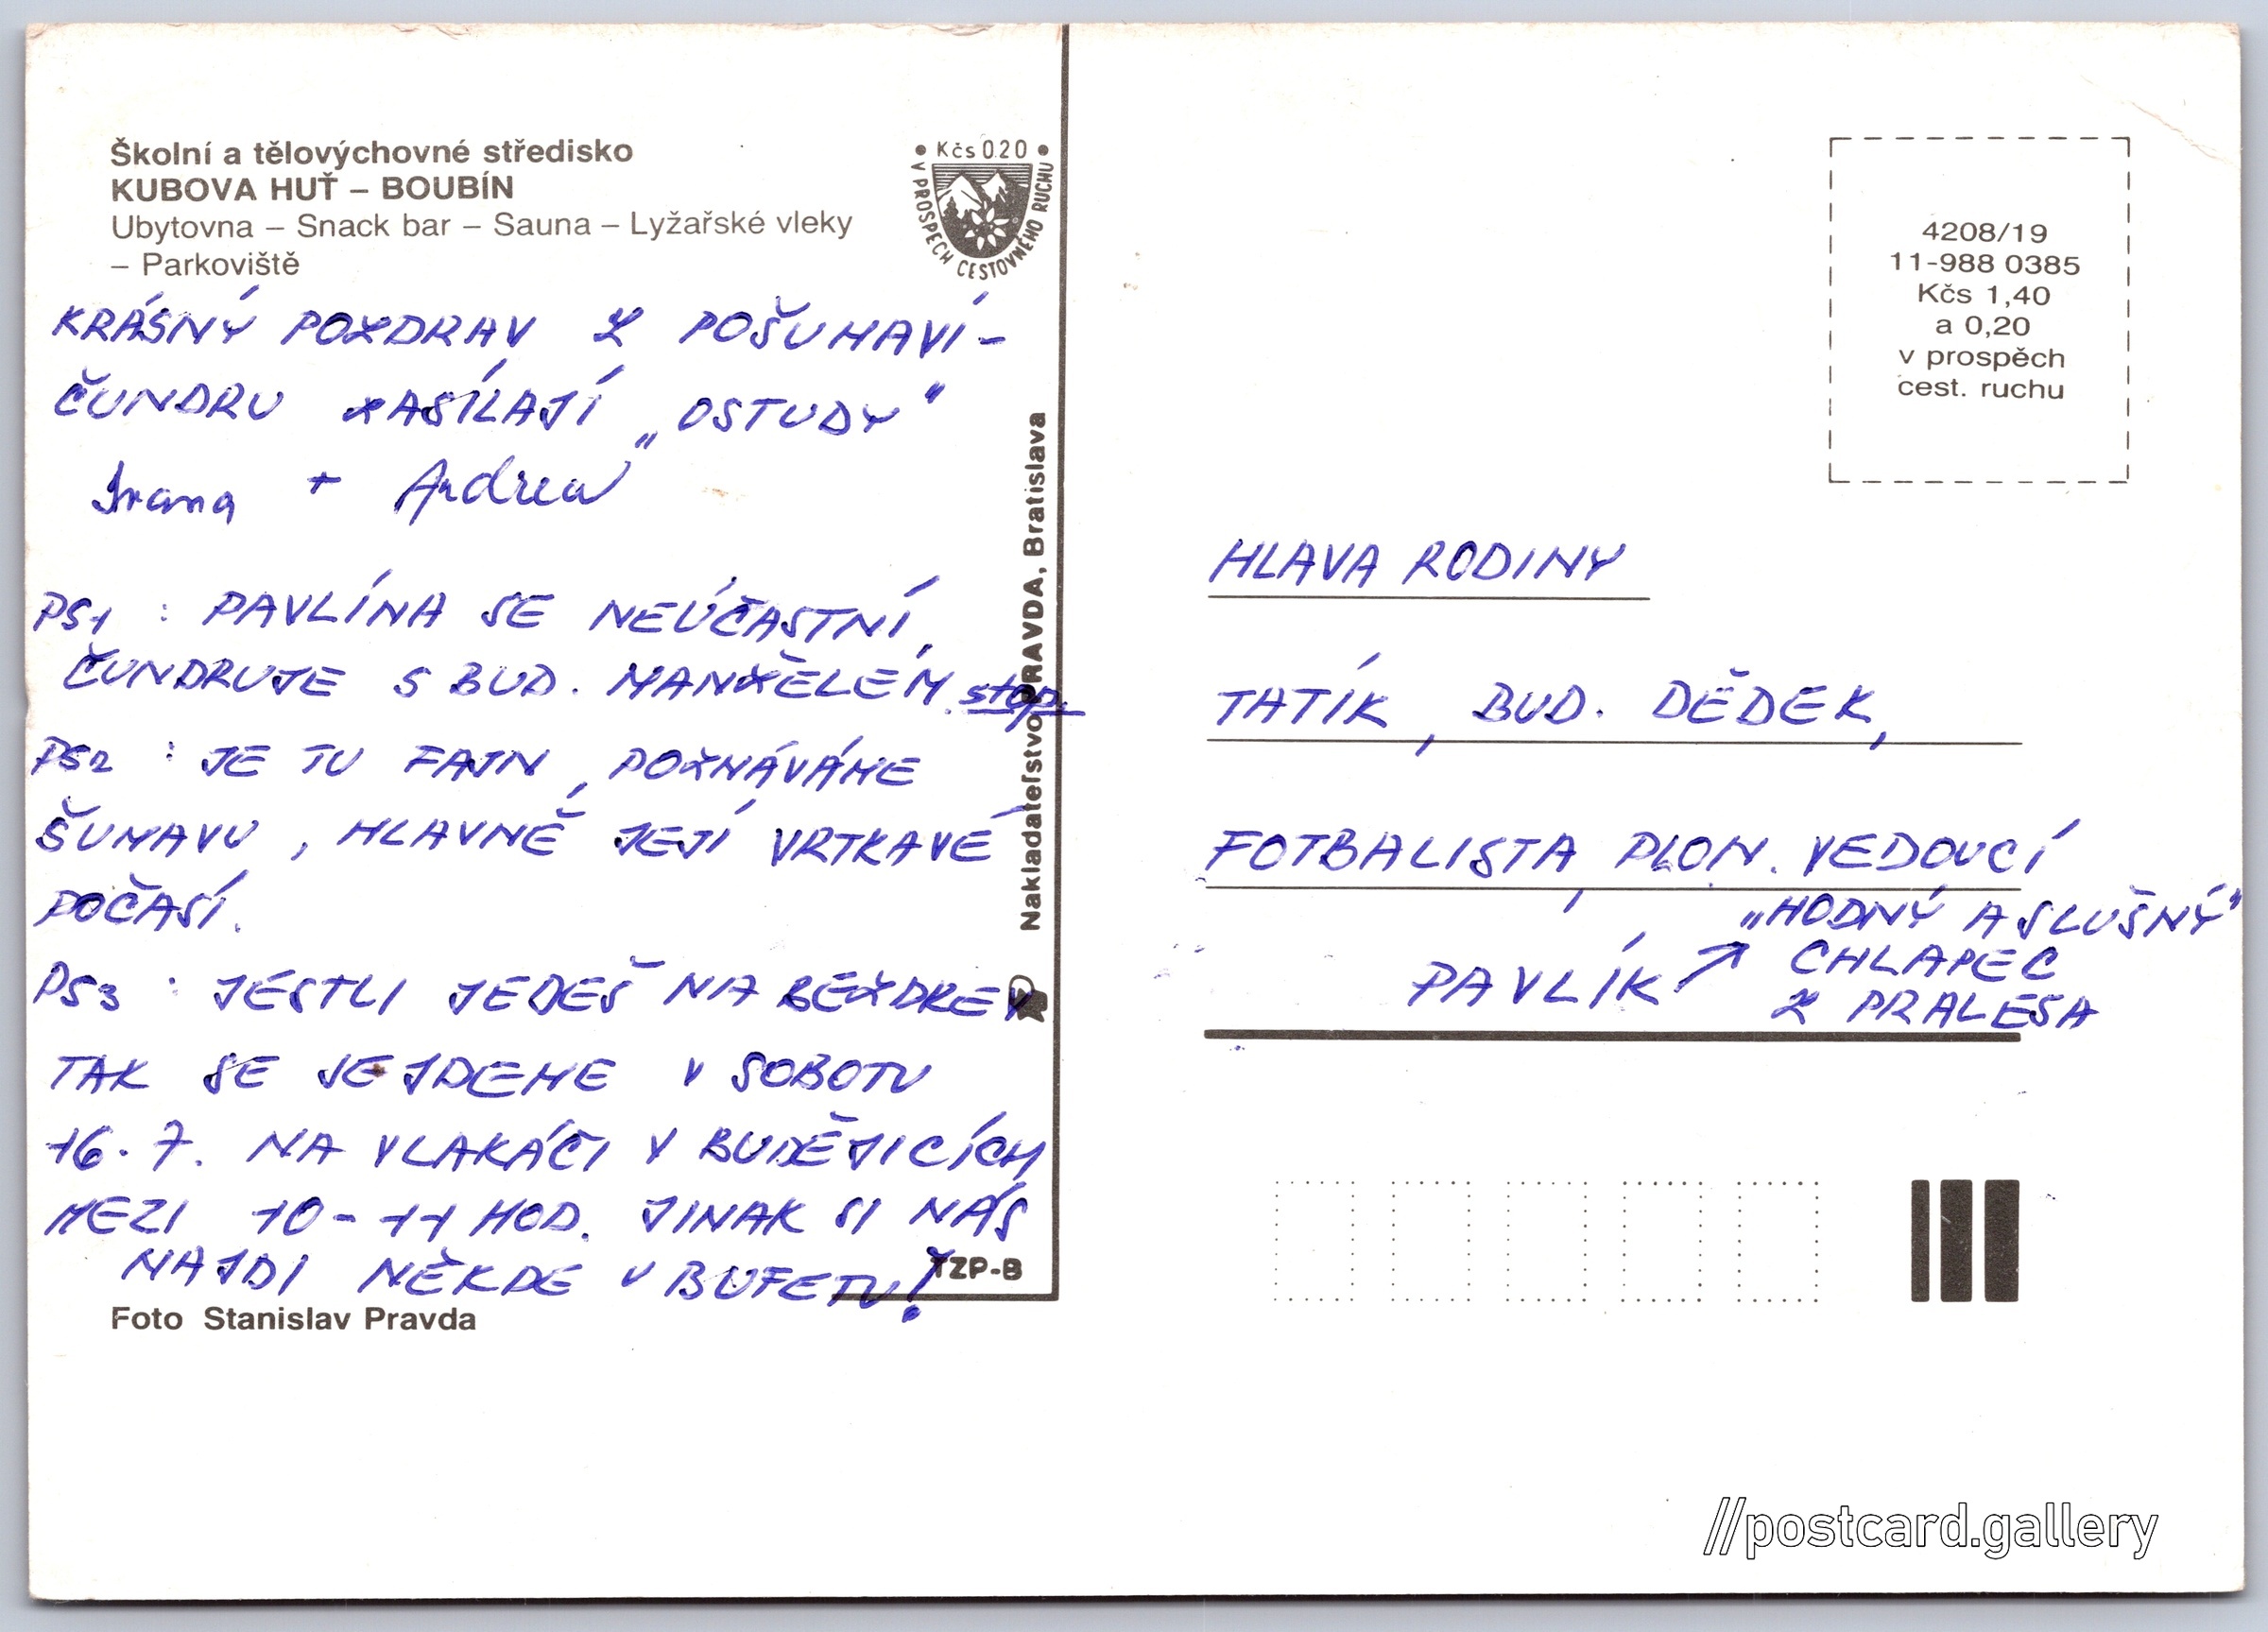 Školní a tělovýchovné středisko
KUBOVA HUŤ – BOUBÍN
Ubytovna – Snack bar – Sauna – Lyžařské vleky
– Parkoviště
• Kčs 0.20 •
V PROSPĚCH CESTOVNÉHO RUCHU
KRÁSNÝ POZDRAV Z POŠUMAVÍ-
ČUNDRU ZASÍLAJÍ „OSTUDY"
Ivana + Andrea
PS1 : PAVLÍNA SE NEÚČASTNÍ,
ČUNDRUJE S BUD. MANŽELEM. stop.
PS2 : JE TU FAJN, POZNÁVÁME
ŠUMAVU, HLAVNĚ JEJÍ VRTKAVÉ
POČASÍ.
PS3 : JESTLI JEDEŠ NA BEZDREV
TAK SE SEJDEME V SOBOTU
16. 7. NA VLAKÁČI V BUDĚJICÍCH
MEZI 10-11 HOD. JINAK SI NÁS
NAJDI NĚKDE V BUFETU!
Foto Stanislav Pravda
Nakladateľstvo PRAVDA, Bratislava
TZP-B
4208/19
11-988 0385
Kčs 1,40
a 0,20
v prospěch
cest. ruchu
HLAVA RODINY
TATÍK, BUD. DĚDEK,
FOTBALISTA, PION. VEDOUCÍ
PAVLÍK ↗ „HODNÝ A SLUŠNÝ"
CHLAPEC
Z PRALESA
//postcard.gallery